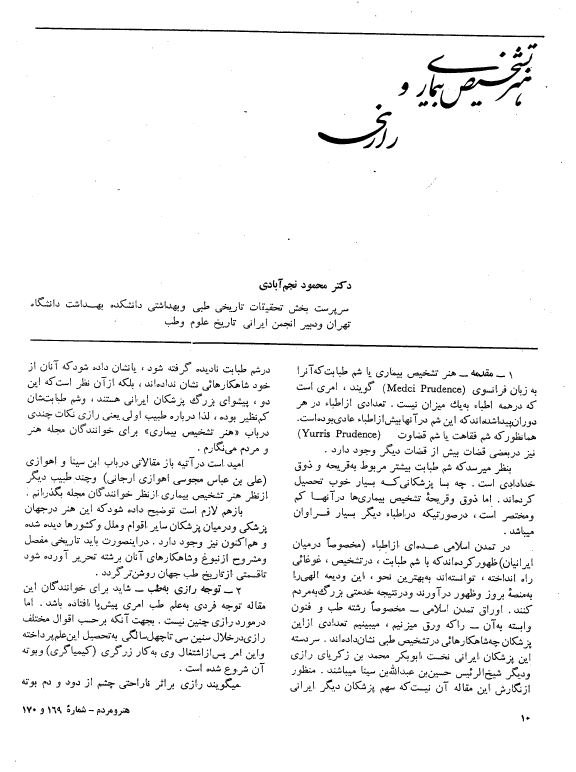 هنر تشخیص بیماری و
رازی
دکتر محمود نجم‌آبادی
سرپرست بخش تحقیقات تاریخی طبی وبهداشتی دانشکده بهداشت دانشگاه
تهران ودبیر انجمن ایرانی تاریخ علوم وطب
۱ – مقدمه – هنر تشخیص بیماری یا شم طبابت‌که‌آنرا
به زبان فرانسوی (Medci Prudence) گویند ، امری است
که درهمه اطباء به‌یك میزان نیست . تعدادی ازاطباء در هر
دوران‌پیداشده‌اندکه این شم درآنها‌بیش‌ازاطباء عادی‌بوده‌است.
همانطورکه شم فقاهت یا شم قضاوت (Yurris Prudence)
نیز دربعضی قضات بیش از قضات دیگر وجود دارد .
بنظر میرسدکه شم طبابت بیشتر مربوط به‌قریحه و ذوق
خدادادی است . چه بسا پزشکانی‌کـه بسیار خوب تحصیل
کرده‌اند . اما ذوق وقریحهٔ تشخیص بیماری‌ها درآنهـا کم
ومختصر است ، درصورتیکه دراطباء دیگر بسیار فـراوان
میباشد .
در تمدن اسلامی عـده‌ای ازاطباء (مخصوصاً درمیان
ایرانیان) ظهورکرده‌اندکه با شم طبابت ، درتشخیص ، غوغائی
راه انداخته ، توانسته‌اند به‌بهترین نحو ، این ودیعه الهی‌را
به‌منصهٔ بروز وظهور درآورند ودرنتیجه خدمتی بزرگ‌به‌مردم
کنند . اوراق تمدن اسلامی – مخصوصاً رشته طب و فنون
وابسته به‌آن – راکه ورق میزنیم ، میبینیم تعدادی ازاین
پزشکان چه‌شاهکارهائی درتشخیص طبی نشان‌داده‌اند . سردسته
این پزشکان ایرانی نخست ابوبکر محمد بن زکریای رازی
ودیگر شیخ‌الرئیس حسین‌بن عبدالله‌بن سینا میباشند . منظور
ازنگارش این مقاله آن نیست‌که سهم پزشکان دیگر ایرانی
درشم طبابت نادیده گرفته شود ، یانشان داده شودکه آنان از
خود شاهکارهائی نشان نداده‌اند ، بلکه ازآن نظر است‌که این
دو ، پیشوای بزرگ پزشکان ایرانی هستند ، وشم طبابت‌شان
کم‌نظیر بوده ، لذا درباره طبیب اولی یعنی رازی نکات چندی
درباب «هنر تشخیص بیماری» برای خوانندگان مجله هنر
و مردم می‌نگارم .
امید است درآتیه باز مقالاتی درباب ابن سینا و اهوازی
(علی بن عباس مجوسی اهوازی ارجانی) وچند طبیب دیگر
ازنظر هنر تشخیص بیماری ازنظر خوانندگان مجله بگذرانم .
بازهم لازم است توضیح داده شودکه این هنر درجهان
پزشکی ودرمیان پزشکان سایر اقوام وملل وکشورها دیده شده
و هم‌اکنون نیز وجود دارد . دراینصورت باید تاریخی مفصل
ومشروح ازنبوغ وشاهکارهای آنان برشته تحریر آورده شود
تاقسمتی ازتاریخ طب جهان روشن‌ترگردد .
۲ – توجه رازی به‌طب – شاید برای خوانندگان این
مقاله توجه فردی به‌علم طب امری پیش‌پا افتاده باشد . اما
درمورد رازی چنین نیست . بجهت آنکه برحسب اقوال مختلف
رازی‌درخلال سنین سی تاچهل‌سالگی به‌تحصیل این‌علم‌پرداخته
واین امر پس‌ازاشتغال وی به‌کار زرگری (کیمیاگری) وبوته
آن شروع شده است .
میگویند رازی براثر ناراحتی چشم از دود و دم بوته
۱۰
هنرومردم – شمارهٔ ۱۶۹ و ۱۷۰